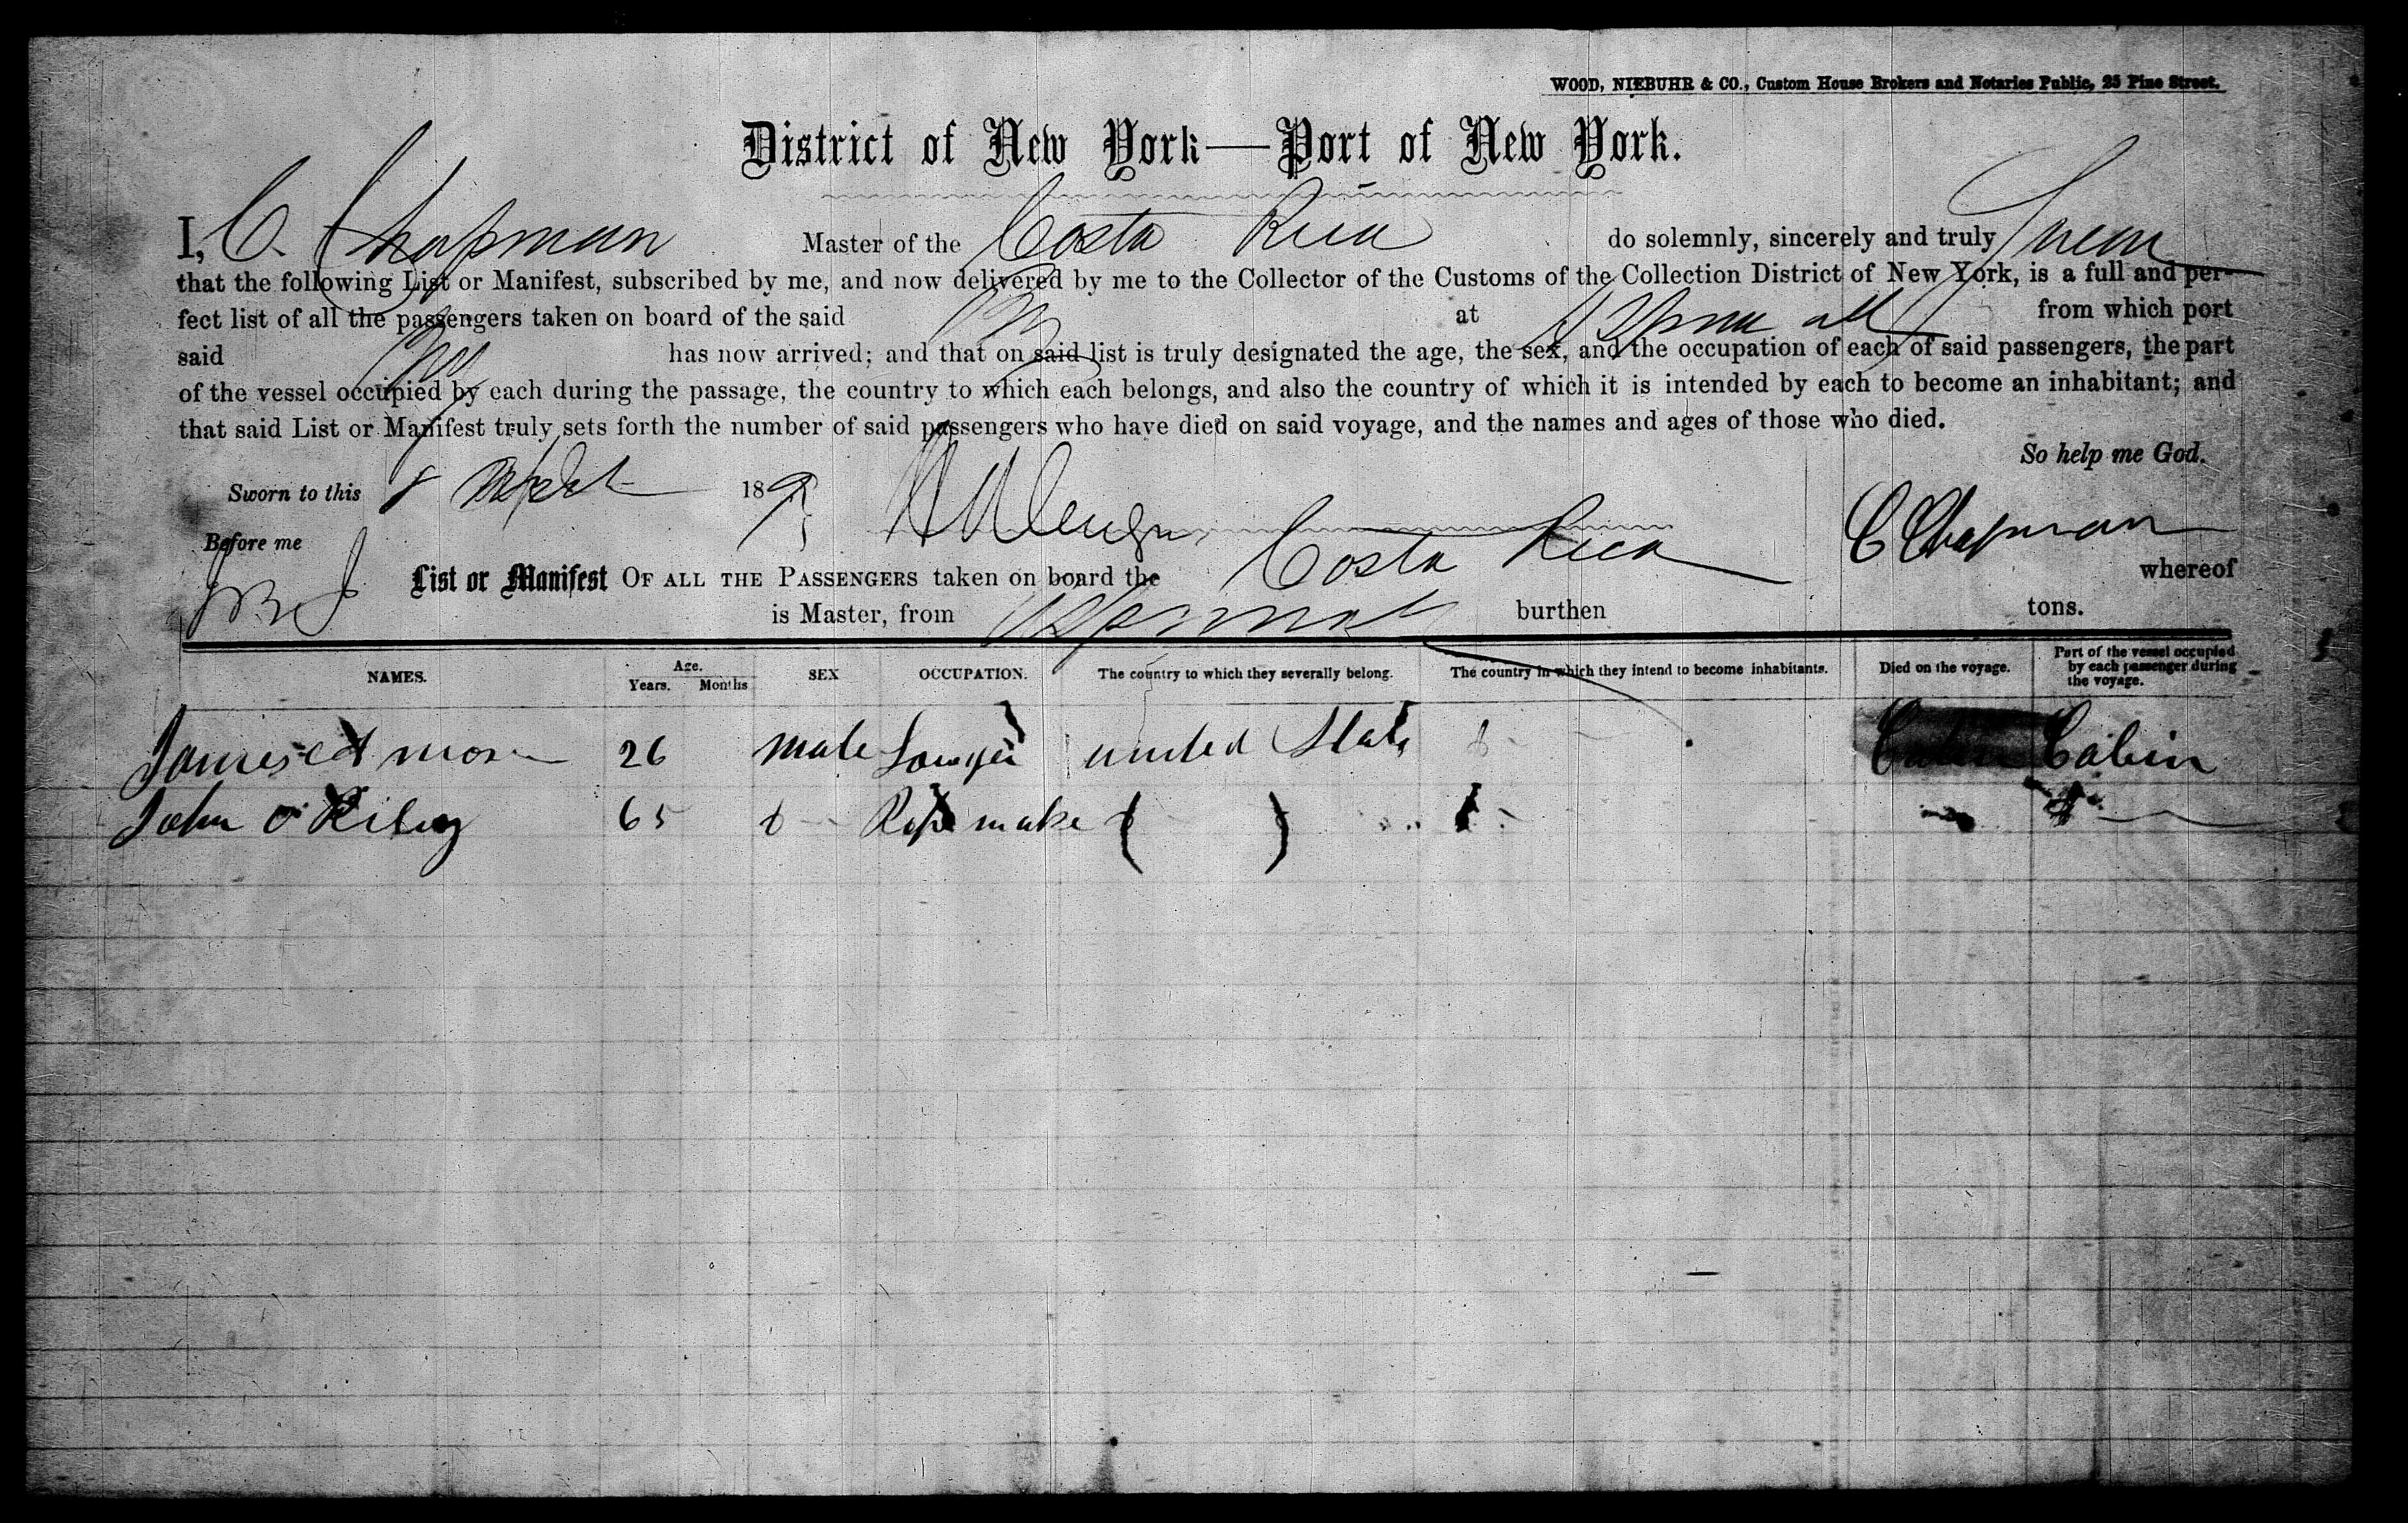 WOOD, NIEBUHR & CO., Custom House Brokers and Notaries Public, 25 Pine Street.
District of New York—Port of New York.
I, C. Chapman Master of the Costa Rica do solemnly, sincerely and truly Swear
that the following List or Manifest, subscribed by me, and now delivered by me to the Collector of the Customs of the Collection District of New York, is a full and per-
fect list of all the passengers taken on board of the said at from which port
said has now arrived; and that on said list is truly designated the age, the sex, and the occupation of each of said passengers, the part
of the vessel occupied by each during the passage, the country to which each belongs, and also the country of which it is intended by each to become an inhabitant; and
that said List or Manifest truly sets forth the number of said passengers who have died on said voyage, and the names and ages of those who died.
So help me God.
Sworn to this 189
Before me C Chapman
List or Manifest OF ALL THE PASSENGERS taken on board the Costa Rica whereof
is Master, from burthen tons.
NAMES. Age. Years. Months SEX OCCUPATION. The country to which they severally belong. The country in which they intend to become inhabitants. Died on the voyage. Part of the vessel occupied by each passenger during the voyage.
James 26 male united State Cabin Cabin
John O Riley 65 Rope make